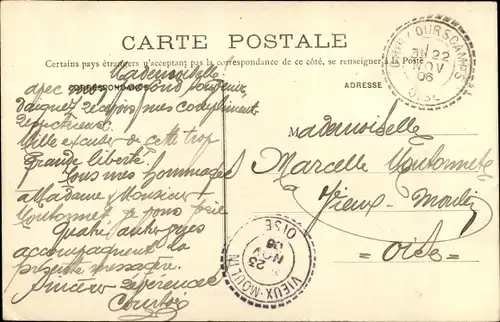 CARTE POSTALE
Certains pays étrangers n'acceptant pas la correspondance de ce côté, se renseigner à la Poste
CORRESPONDANCE
ADRESSE
OURSCAMPS
22
NOV
06
OISE
Mademoiselle
avec mon bon souvenir
Daignez recevoir mes compliments
respectueux
Mille excuses de cette trop
grande liberté.
Tous mes hommages
à Madame & Monsieur
Moutonnet je vous prie
Quatre autres vues
accompagnent la
présente messagère.
Sincères références
Courtois
Mademoiselle
Marcelle Moutonnet
à Vieux-Moulin
= Oise =
VIEUX-MOULIN
23
NOV
06
OISE